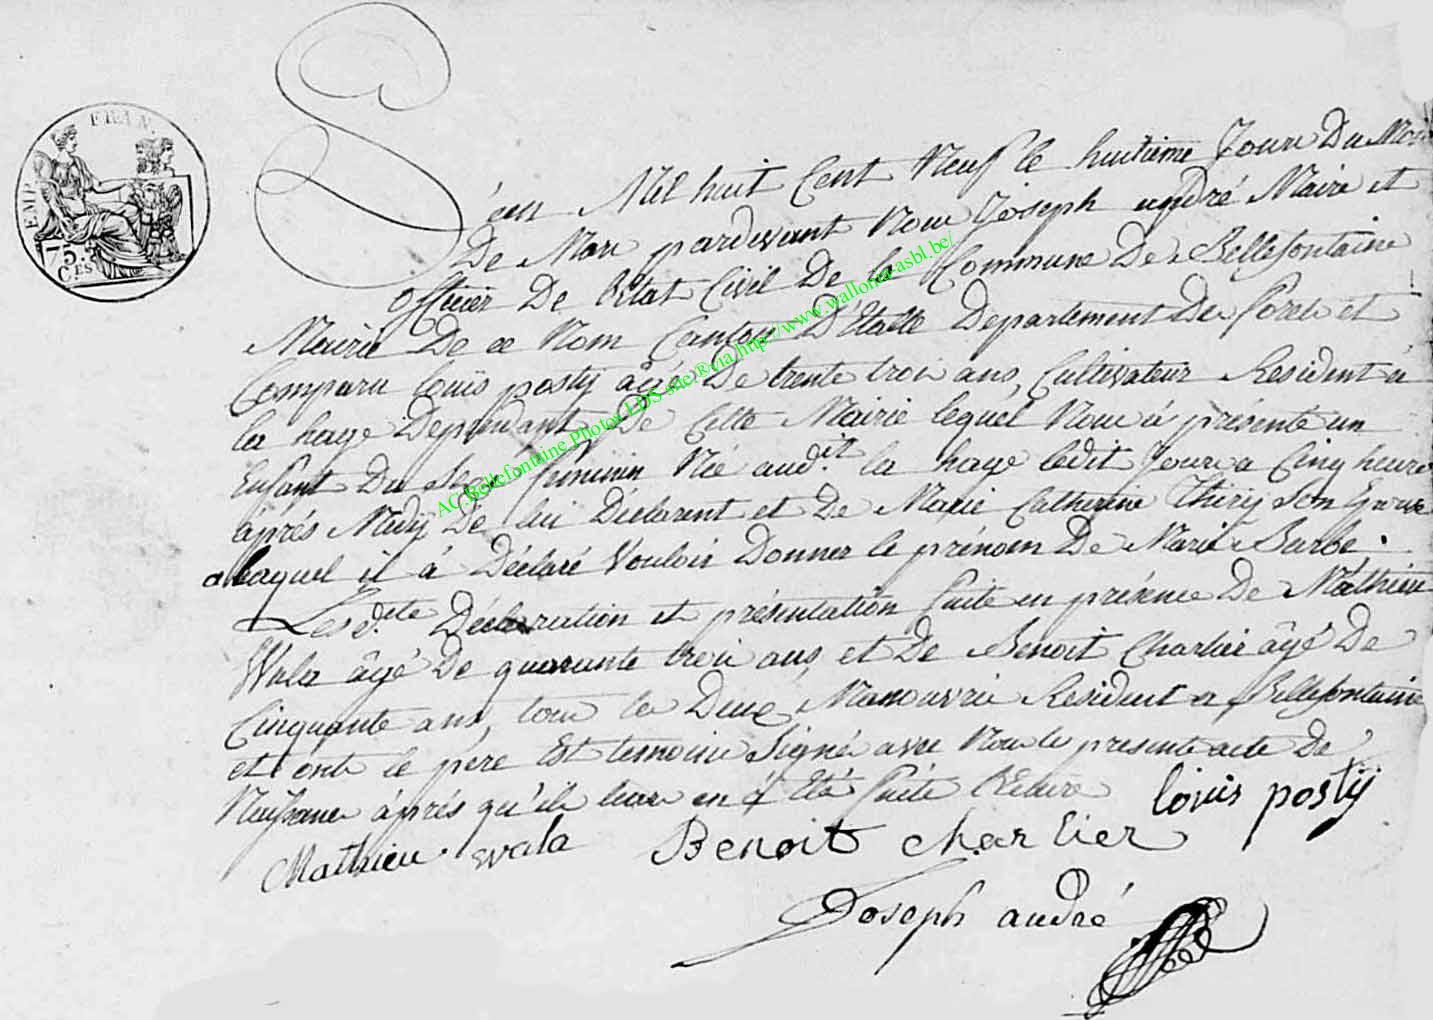 EMP. FRAN.
75.
C.ES
L'an Mil huit Cent Neuf le huitieme Jour Du Mois
De Mars pardevant Nous Joseph andré Maire et
officier De l'Etat Civil De la Commune De Bellefontaine
Mairie De ce Nom Canton D'Etalle Departement Des Forets et
Comparu Louis posty âgé De trente trois ans, Cultivateur Résident à
la hage Dependant De Cette Mairie lequel Nous à présenté un
Enfant Du Sexe feminin Née aud.it la hage ledit Jour a Cinq heures
áprés Midy De lui Déclarent et De Marie Catherine Thiry Son Epouse
a laquel il à Déclaré Vouloir Donner le prénom De Marie Barbe.
Lesd.ite Déclaration et présentation faite en présence De Mathieu
Wala âgé De quarante trois ans, et De Benoit Charlier âgé De
Cinquante ans, tous les Deux Manouvrie Résident a Bellefontaine
et ont le pere Et temoins Signé avec Nous le present acte De
Naissance áprés qu'ils leur en á Eté faite lecture
louis posty
Mathieu wala Benoit charlier
Joseph andré
AC.Bellefontaine.Photos LDS-site,®via,http://www.wallonia-asbl.be/